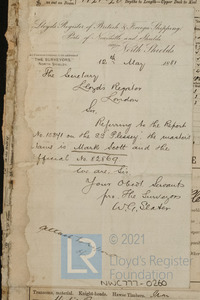 Lloyd's Register of British & Foreign Shipping,
Port of
North Shields
THE SURVEYORS
NORTH SHIELDS
12th May 1881
The Secretary
Lloyds Register
London
Sir
Referring to the Report
No 15391 on the SS Plessey. the masters
name is Mark Scott and the
official No 82869
we are Sir
Your Obedt Servants
for The Surveyors
W. G. Slater
© 2021
Lloyd's Register
Foundation
NWC777-0260
Transoms, material. Knight-heads. Hawse Timbers.